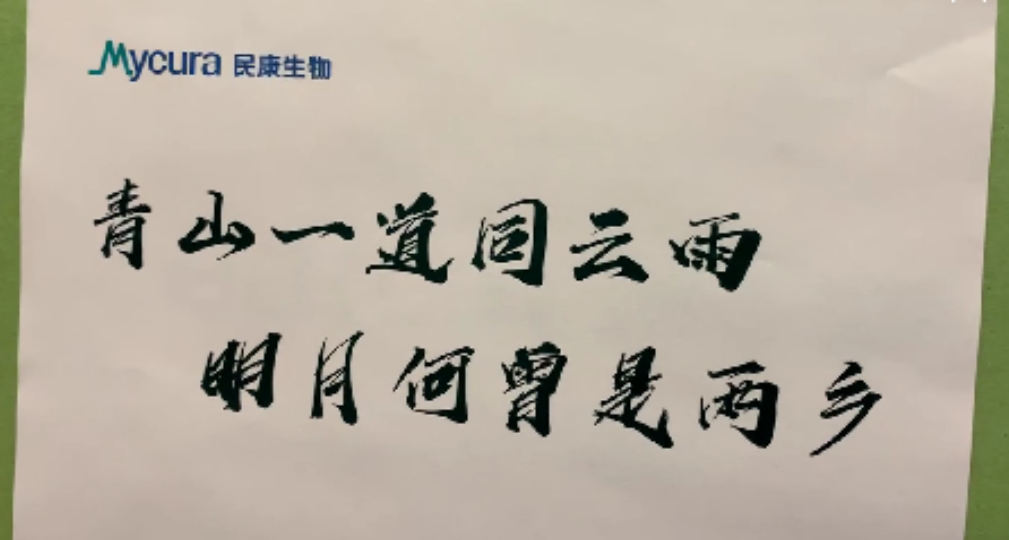 Mycura 民康生物
青山一道同云雨
明月何曾是两乡